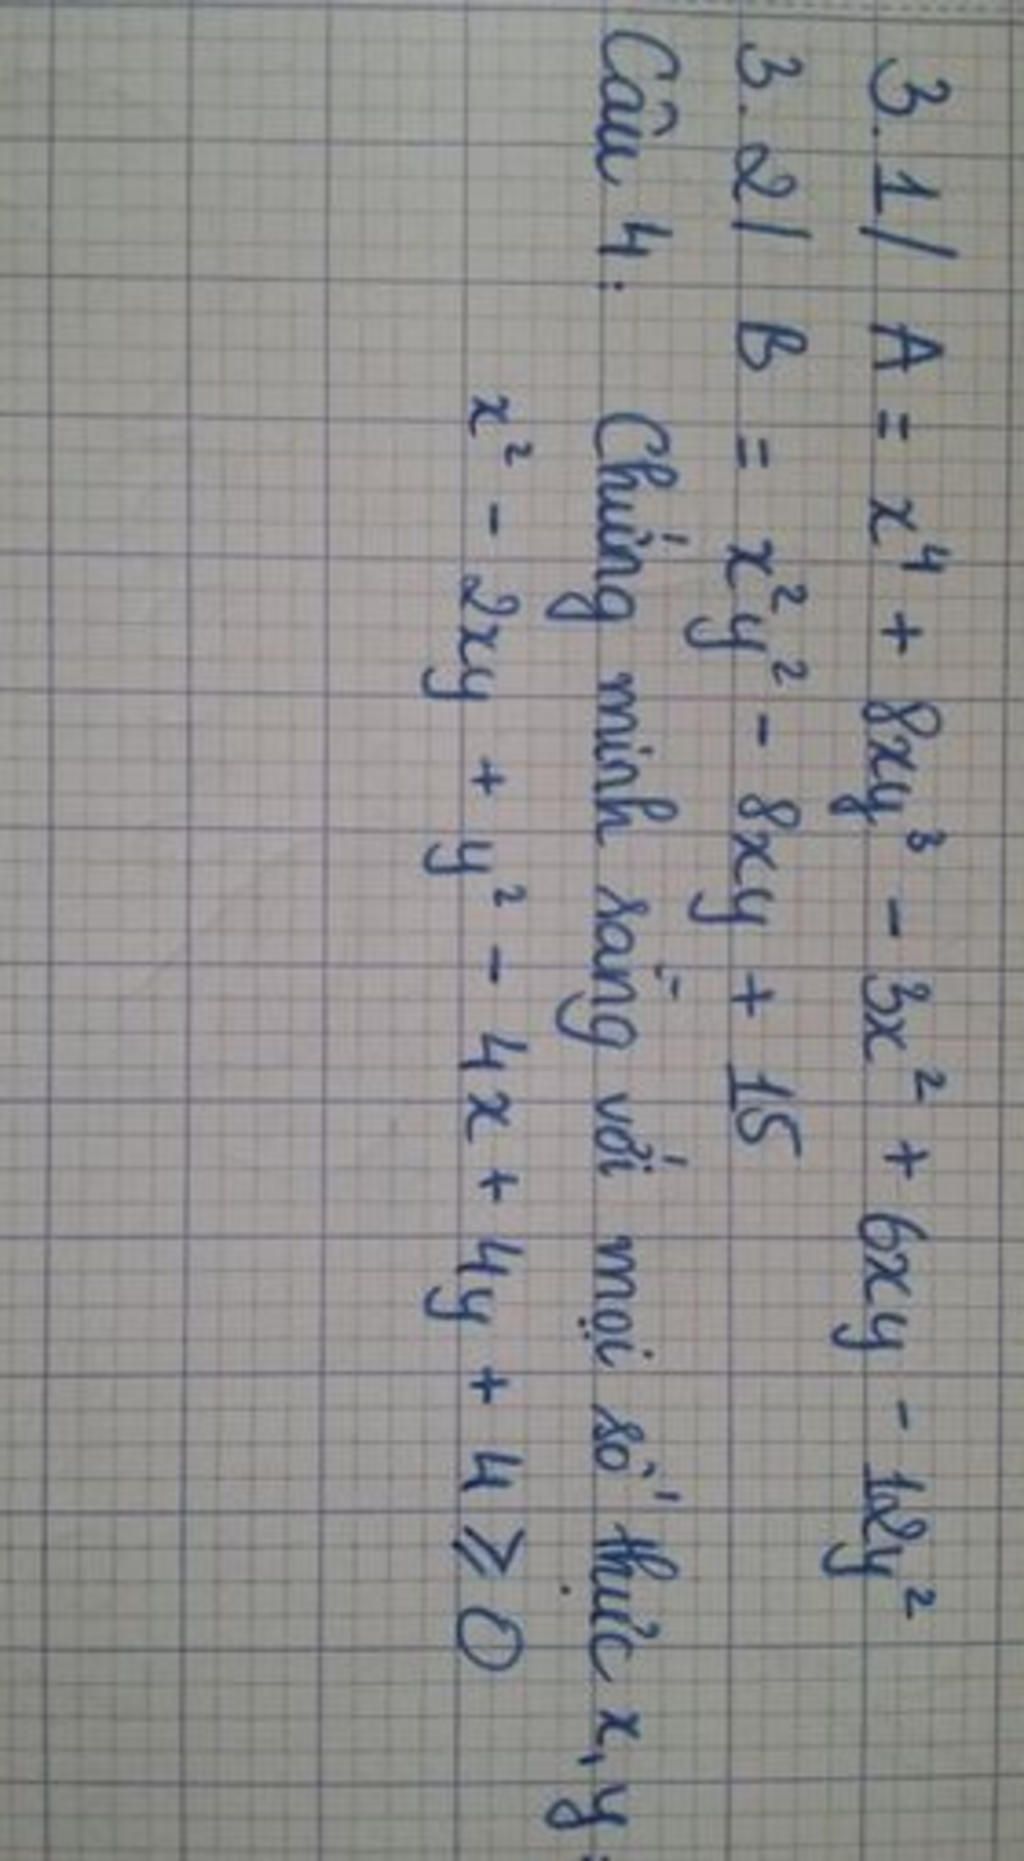 3.1/ A = x⁴ + 8xy³ - 3x² + 6xy - 12y²
3.2/ B = x²y² - 8xy + 15
Câu 4: Chứng minh rằng với mọi số thực x, y:
x² - 2xy + y² - 4x + 4y + 4 ≥ 0